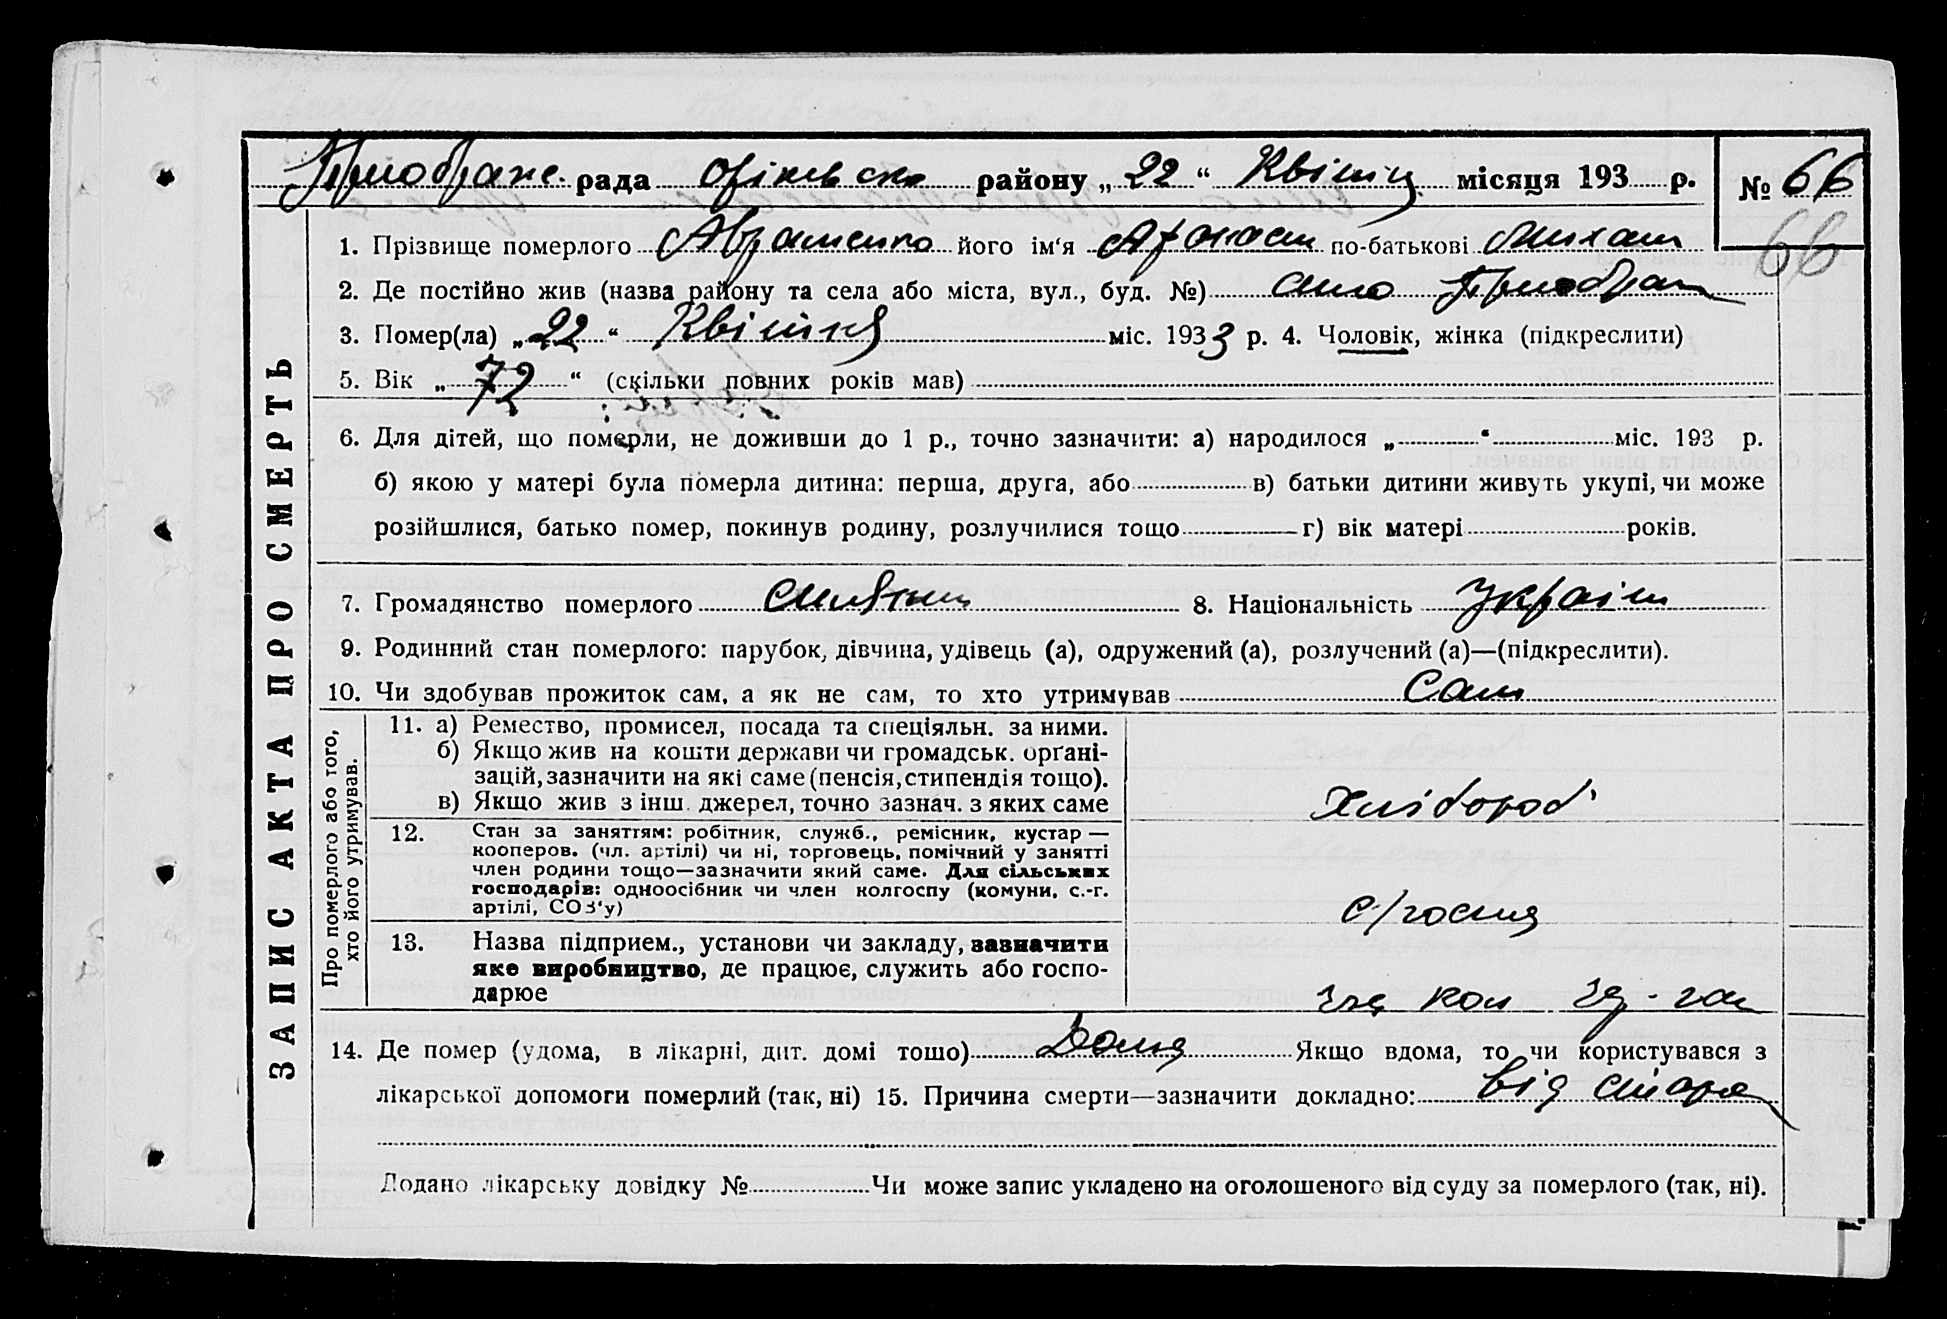 Приображе. рада оріхівсько району „22“ Квітня місяця 193 р. № 66
66
1. Прізвище померлого Авраменко його ім'я Афанасі по-батькові Михаил
2. Де постійно жив (назва району та села або міста, вул., буд. №) село Приображ
3. Помер(ла) „22“ Квітня міс. 1933 р. 4. Чоловік, жінка (підкреслити)
5. Вік „72“ (скільки повних років мав)
6. Для дітей, що померли, не доживши до 1 р., точно зазначити: а) народилося „ “ міс. 193 р.
б) якою у матері була померла дитина: перша, друга, або в) батьки дитини живуть укупі, чи може
розійшлися, батько помер, покинув родину, розлучилися тощо г) вік матері років.
7. Громадянство померлого 8. Національність україн
9. Родинний стан померлого: парубок, дівчина, удівець (а), одружений (а), розлучений (а)—(підкреслити).
10. Чи здобував прожиток сам, а як не сам, то хто утримував Сам
ЗАПИС АКТА ПРО СМЕРТЬ
Про померлого або того,
хто його утримував.
11. а) Ремество, промисел, посада та спеціяльн. за ними.
б) Якщо жив на кошти держави чи громадськ. орґані-
зацій, зазначити на які саме (пенсія, стипендія тощо).
в) Якщо жив з інш. джерел, точно зазнач. з яких саме
хлібороб
12. Стан за заняттям: робітник, служб., ремісник, кустар —
кооперов. (чл. артілі) чи ні, торговець, помічний у занятті
член родини тощо—зазначити який саме. Для сільських
господарів: одноосібник чи член колгоспу (комуни, с.-г.
артілі, СОЗ'у)
13. Назва підприєм., установи чи закладу, зазначити
яке виробництво, де працює, служить або госпо-
дарює
14. Де помер (удома, в лікарні, дит. домі тошо) Дома Якщо вдома, то чи користувався з
лікарської допомоги померлий (так, ні) 15. Причина смерти—зазначити докладно: від старо
Додано лікарську довідку № Чи може запис укладено на оголошеного від суду за померлого (так, ні).